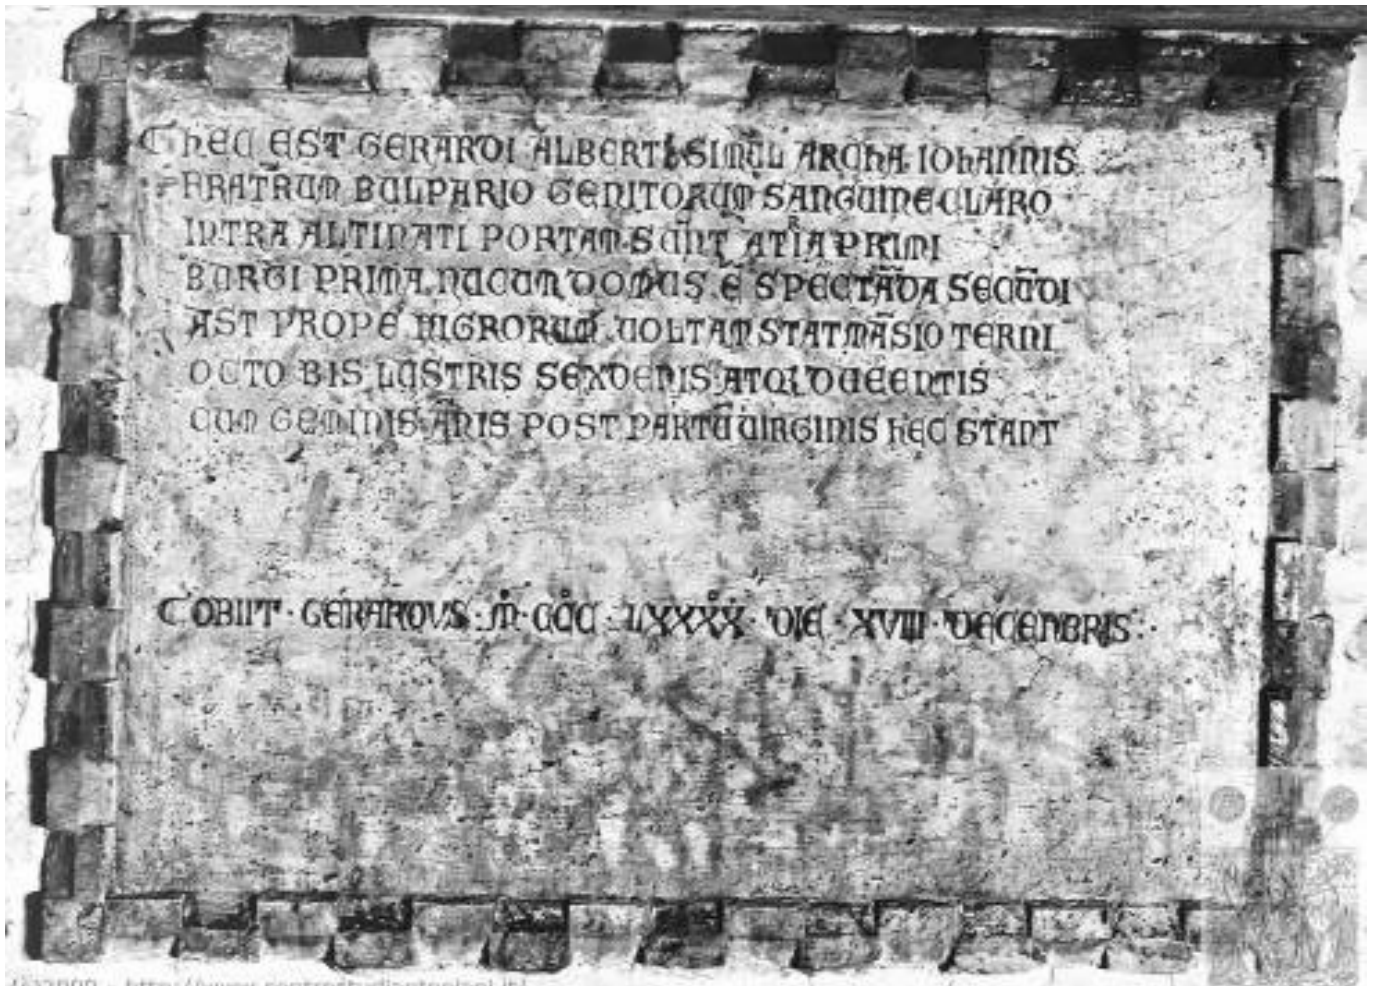 HEC EST GERARDI ALBERTI SIMUL ARCHA IOHANNIS
FRATRUM BULPARIO GENITORUM SANGUINE CLARO
INTRA ALTINATI PORTAM SUNT ATRIA PRIMI
BURGI PRIMA NUCUM DOMUS Ē SPECTĀDA SECŪDI
AST PROPE NIGRORUM UOLTAM STAT MĀSIO TERNI
OCTO BIS LUSTRIS SEXDENIS ATQ DUCENTIS
CUM GEMINIS ĀNIS POST PARTŪ UIRGINIS HEC STANT
OBIIT · GERARDVS · M · CCC · LXXXX · DIE · XVIII · DECENBRIS ·